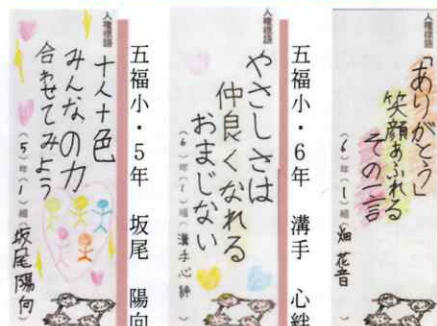 人権標語
「ありがとう」
笑顔あふれる
その一言
(6)年(1)組 畑 花音
五福小・6年 溝手 心絆
人権標語
やさしさは
仲良くなれる
おまじない
(6)年(1)組 溝手心絆
五福小・5年 坂尾 陽向
人権標語
十人十色
みんなの力
合わせてみよう
(5)年(1)組 坂尾陽向